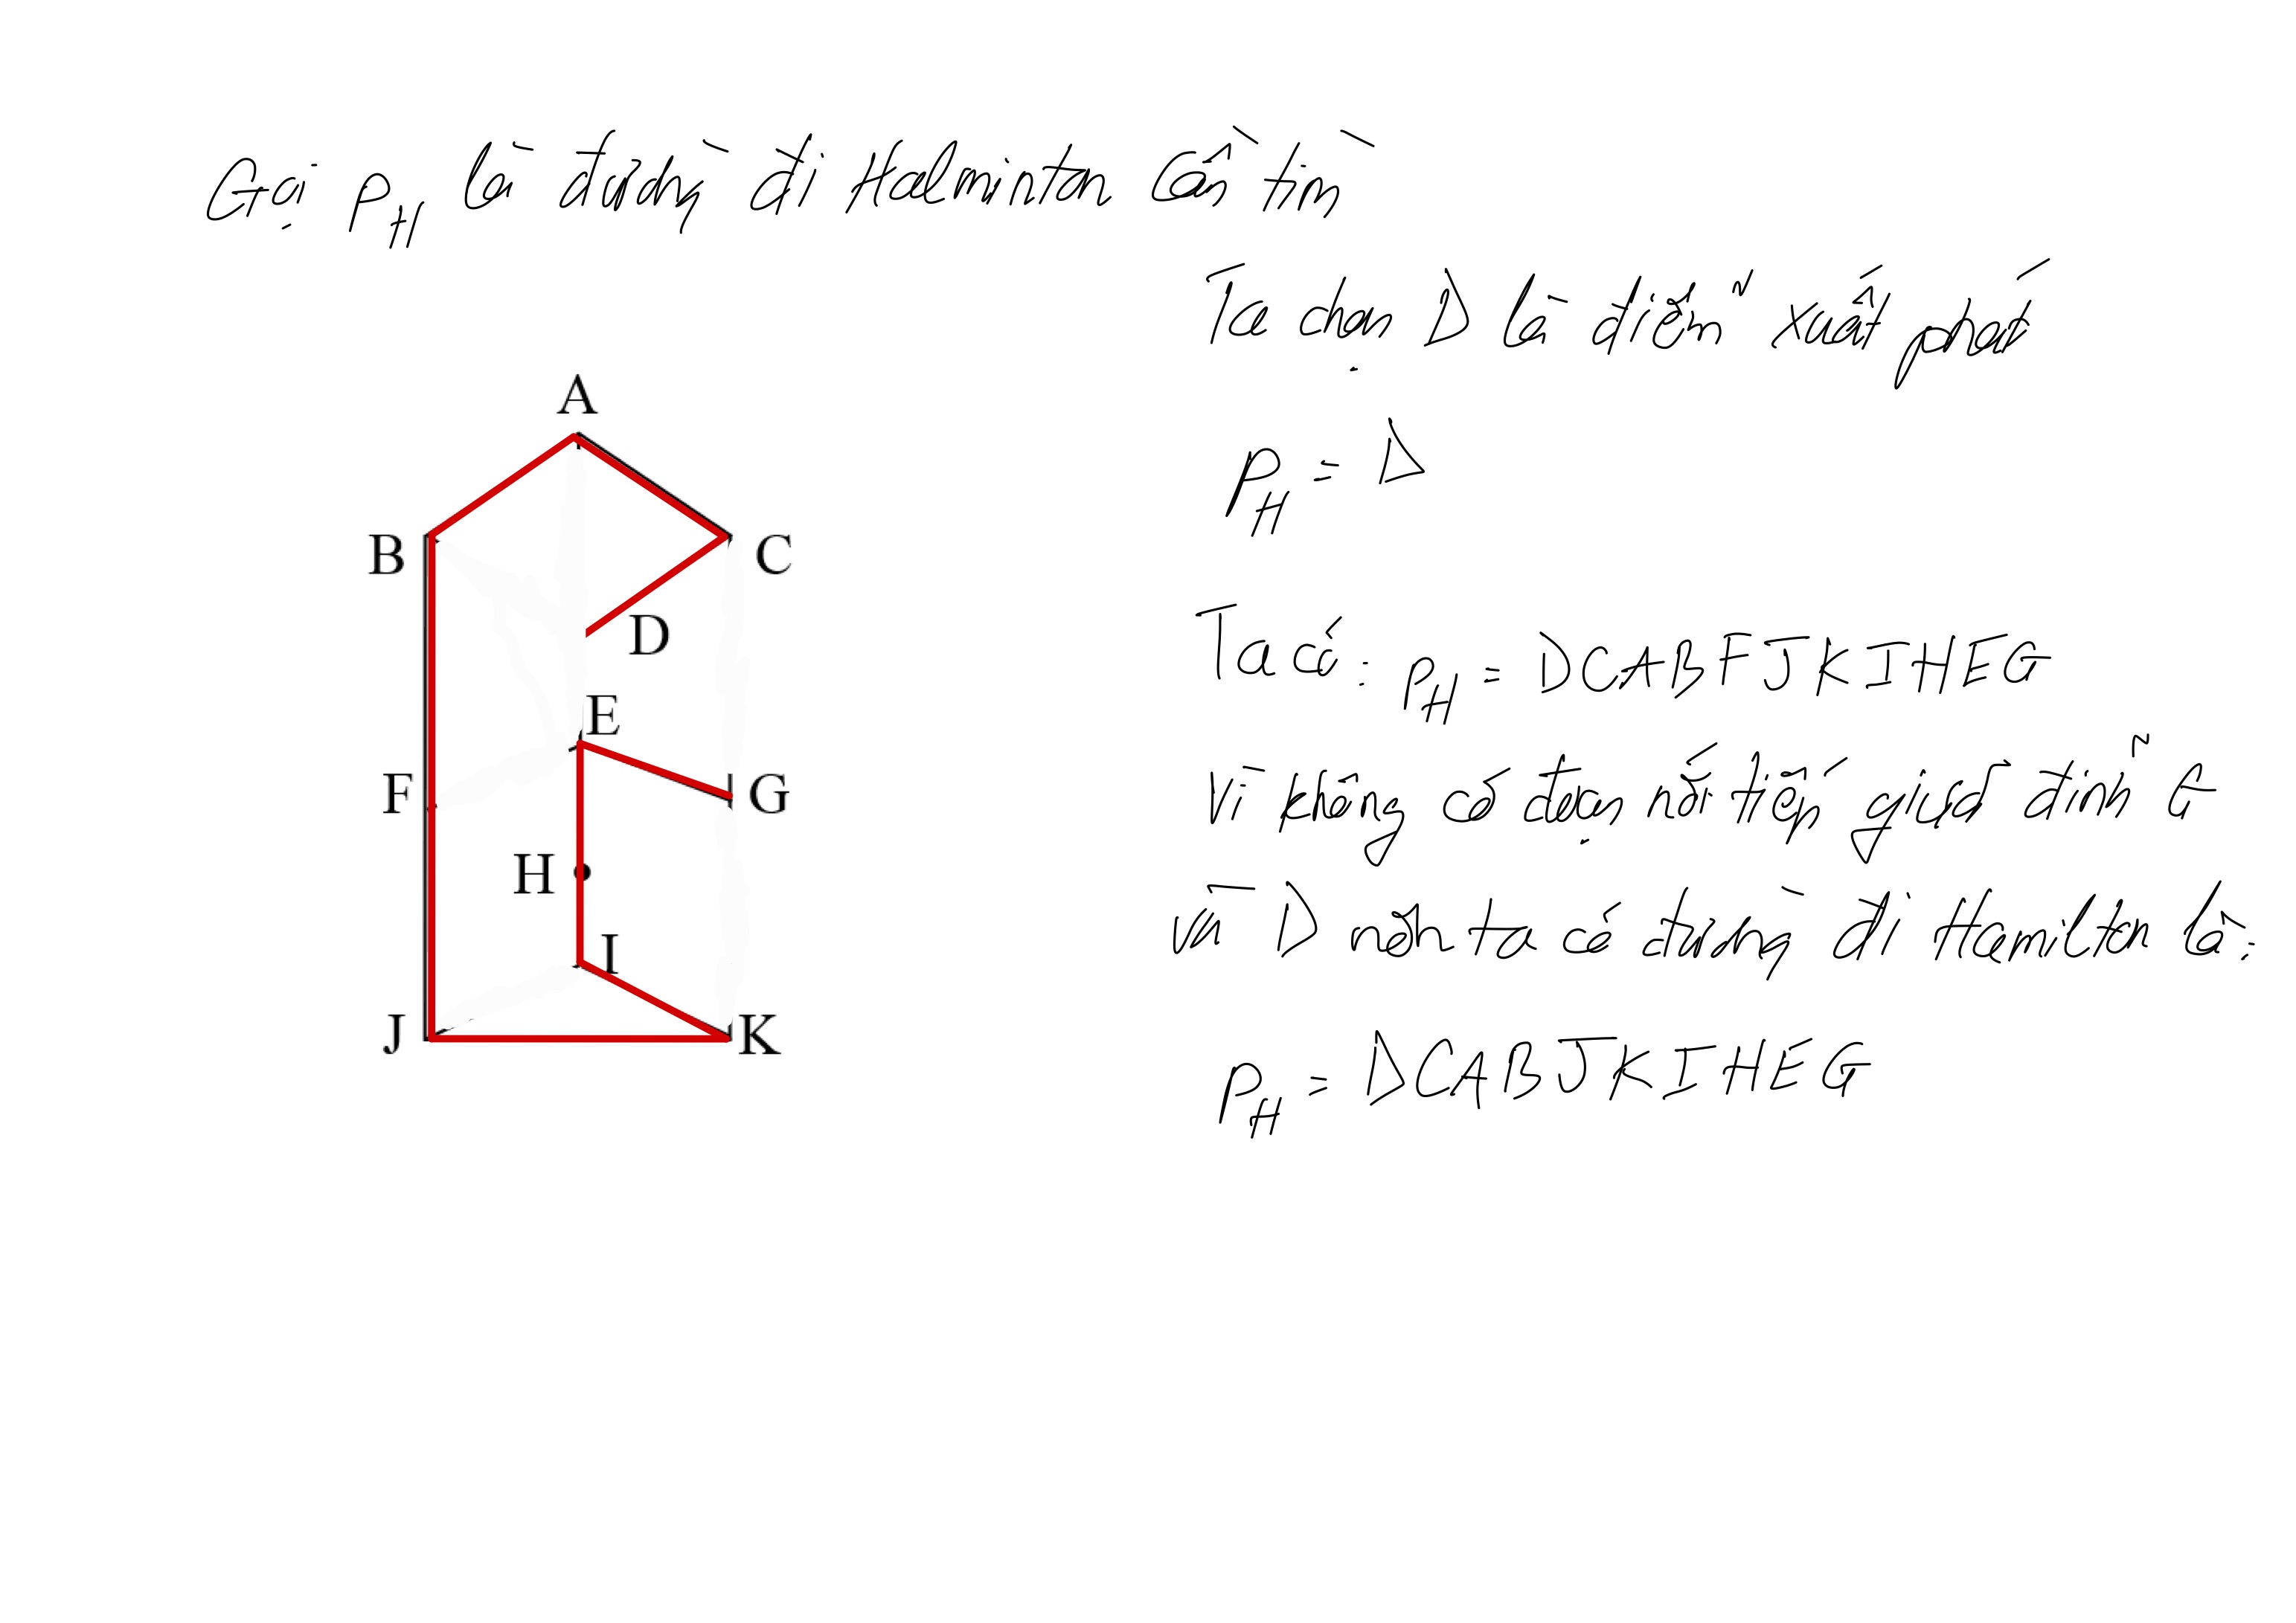 Gọi P_H là đường đi Halminton cần tìm
Ta chọn D là điểm xuất phát
A
P_H = D
B
C
D
Ta có: P_H = DCABFJKIHEG
E
F
G
Vì không có đoạn nối tiếp giữa đỉnh G
H
và D nên ta có đường đi Hamilton là:
I
J
K
P_H = DCABJKIHEG